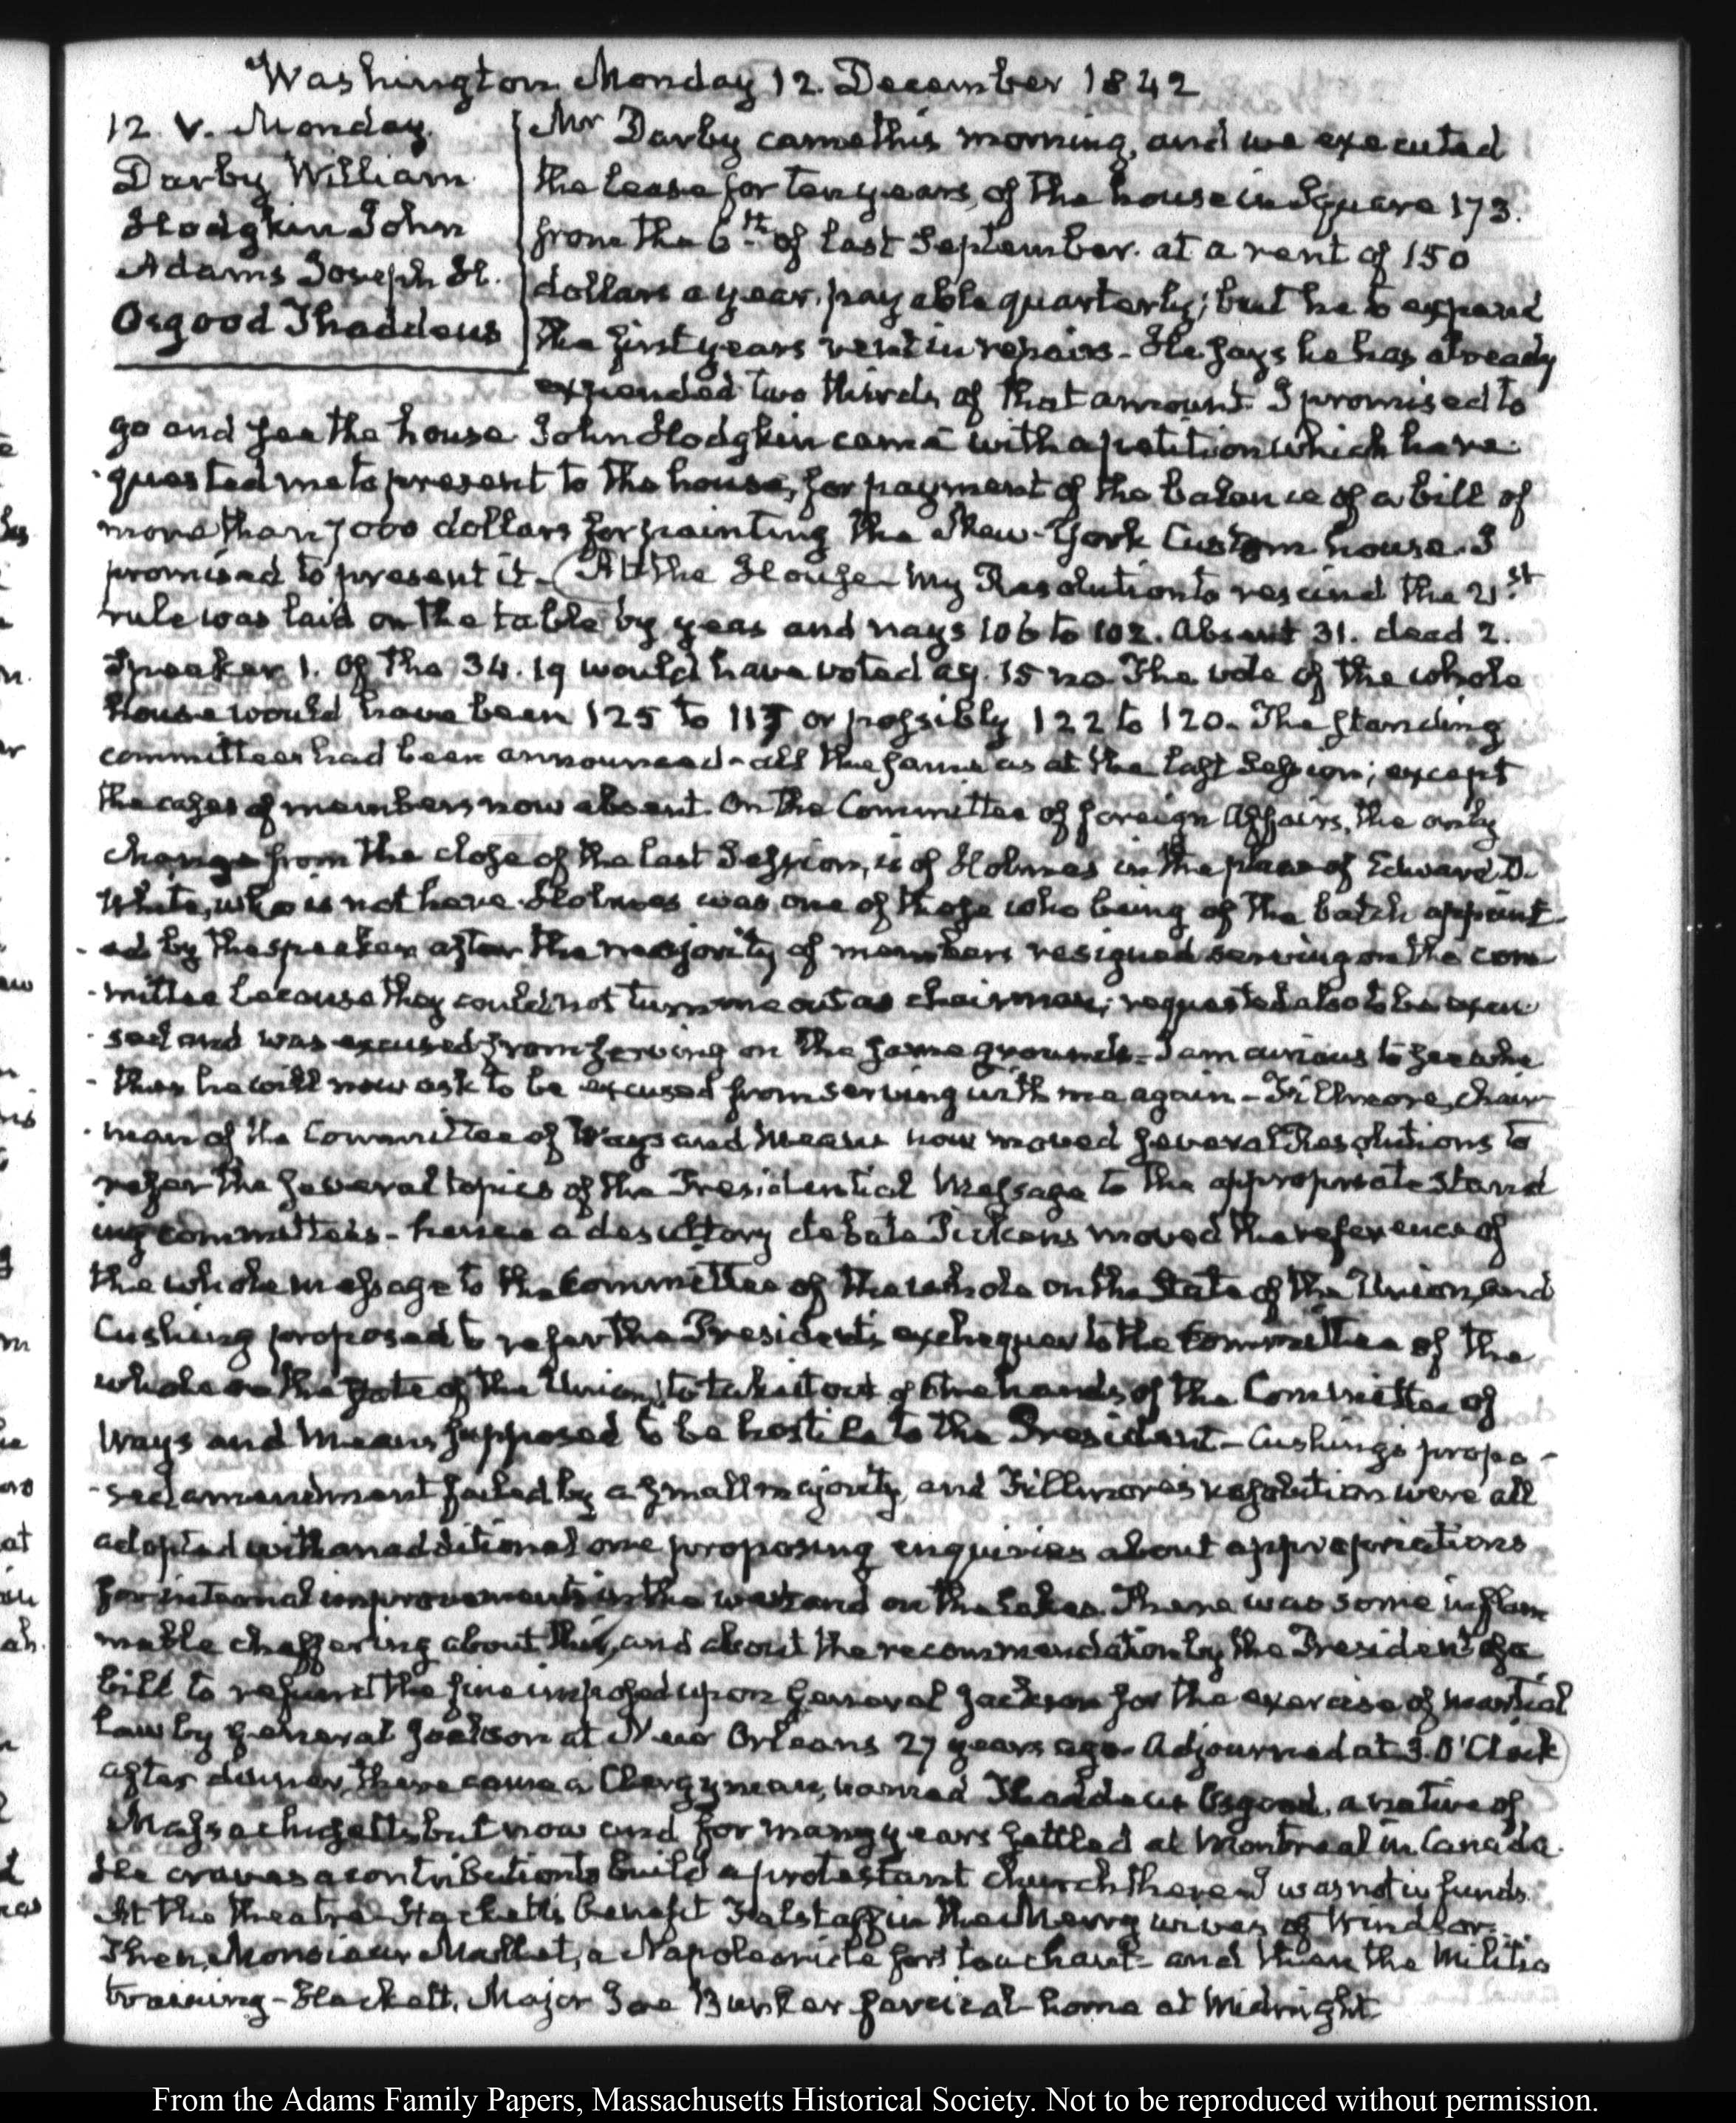 Washington Monday 12. December 1842
12. V. Monday.
Darby William
Hodgkin John
Adams Joseph H.
Osgood Thaddeus
Mr Darby came this morning, and we executed
the lease for ten years, of the house in Square 173.
from the 6th of last September. at a rent of 150
dollars a year, payable quarterly; but he to expend
the first years rent in repairs - He says he has already
expended two thirds of that amount. I promised to
go and see the house. John Hodgkin came with a petition which he re-
quested me to present to the house, for payment of the balance of a bill of
more than 7000 dollars for painting the New-York Custom house. I
promised to present it - (At the House - My Resolution to rescind the 21st
rule was laid on the table by yeas and nays 106 to 102. absent 31. dead 2.
Speaker 1. Of the 34. 19 would have voted ay. 15 no. The vote of the whole
house would have been 125 to 117 or possibly 122 to 120. The standing
committees had been announced - all the same as at the last Session; except
the cases of members now absent. On the Committee of foreign Affairs, the only
change from the close of the last Session, is of Holmes in the place of Edward D.
White, who is not here. Holmes was one of those who being of the batch appoint-
ed by the speaker after the majority of members resigned serving on the com-
mittee because they could not turn me out as chairman; requested also to be excu-
sed and was excused from serving on the same grounds - I am curious to see whe-
ther he will now ask to be excused from serving with me again - Fillmore, chair-
man of the Committee of Ways and Means now moved several Resolutions to
refer the several topics of the Presidential Message to the appropriate stand
ing committees - hence a desultory debate Pickens moved the reference of
the whole message to the committee of the whole on the State of the Union, and
Cushing proposed to refer the President's exchequer to the Committee of the
whole on the state of the Union, to take it out of the hands of the Committee of
Ways and Means supposed to be hostile to the President - Cushing's propo-
sed amendment failed by a small majority, and Fillmore's resolution were all
adopted with an additional one proposing enquiries about appropriations
for internal improvements in the west and on the Lakes. There was some inflam
mable chaffering about this, and about the recommendation by the President of a
bill to refund the fine imposed upon General Jackson for the exercise of martial
law by General Jackson at New Orleans 27 years ago. Adjourned at 3. O'Clock)
after dinner, there came a Clergyman, named Thaddeus Osgood, a native of
Massachusetts but now and for many years settled at Montreal in Canada.
He craves a contribution to build a protestant church there - I was not in funds.
At the theatre Hackett's benefit Falstaff in the Merry wives of Windsor.
Then, Monsieur Mallet, a Napoleonide fort touchant - and then the Militia
training - Hackett, Major Joe Bunker farcical - home at Midnight
From the Adams Family Papers, Massachusetts Historical Society. Not to be reproduced without permission.